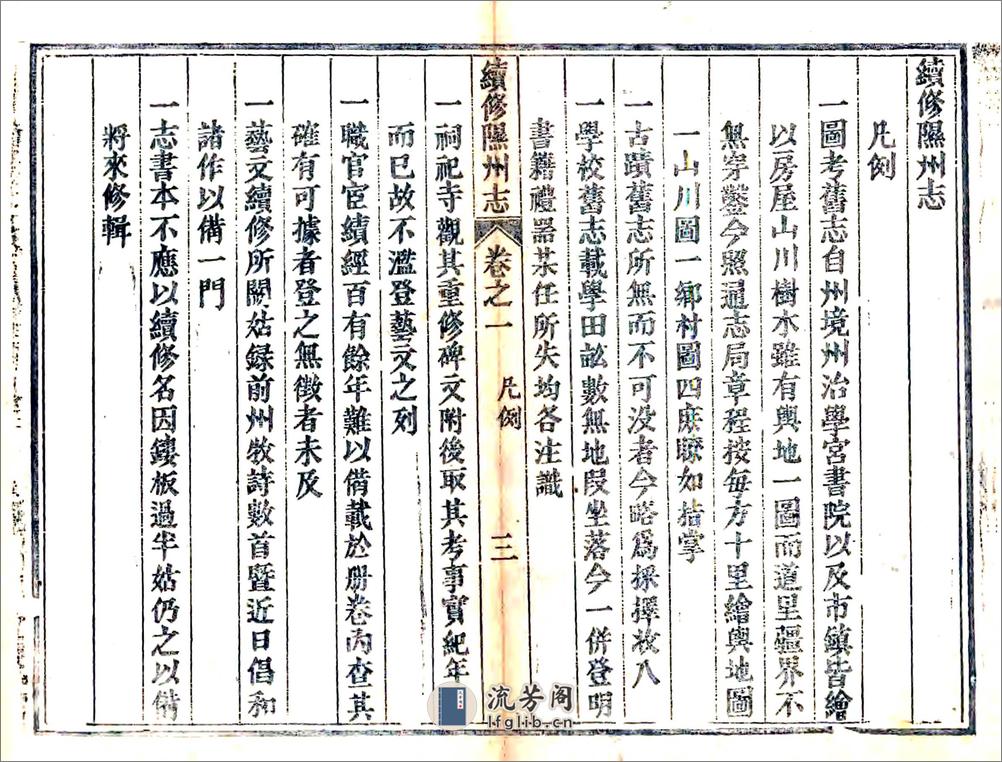 續修隰州志
凡例
一圖考舊志自州境州治學宮書院以及市鎮皆繪
以房屋山川樹木雖有輿地一圖而道里疆界不
無穿鑿今照通志局章程按每方十里繪輿地圖
一山川圖一鄉村圖四庶瞭如指掌
一古蹟舊志所無而不可没者今略為採擇敘入
一學校舊志載學田畝數無地段坐落今一併登明
書籍禮器某任所失均各注識
續修隰州志 卷之一 凡例 三
一祠祀寺觀其重修碑文附後取其考事實紀年
而已故不濫登藝文之列
一職官宦績經百有餘年難以備載於册卷內查其
確有可據者登之無徵者未及
一藝文續修所關姑録前州牧詩數首暨近日倡和
諸作以備一門
一志書本不應以續修名因鏤板過半姑仍之以備
將來修輯
流芳阁
lfglib.cn